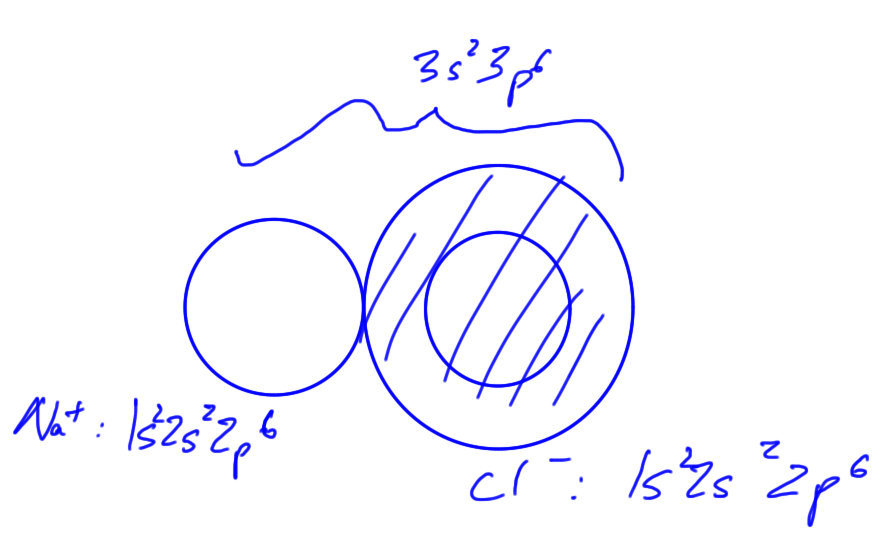 3s²3p⁶
Na⁺: 1s²2s²2p⁶
Cl⁻: 1s²2s²2p⁶